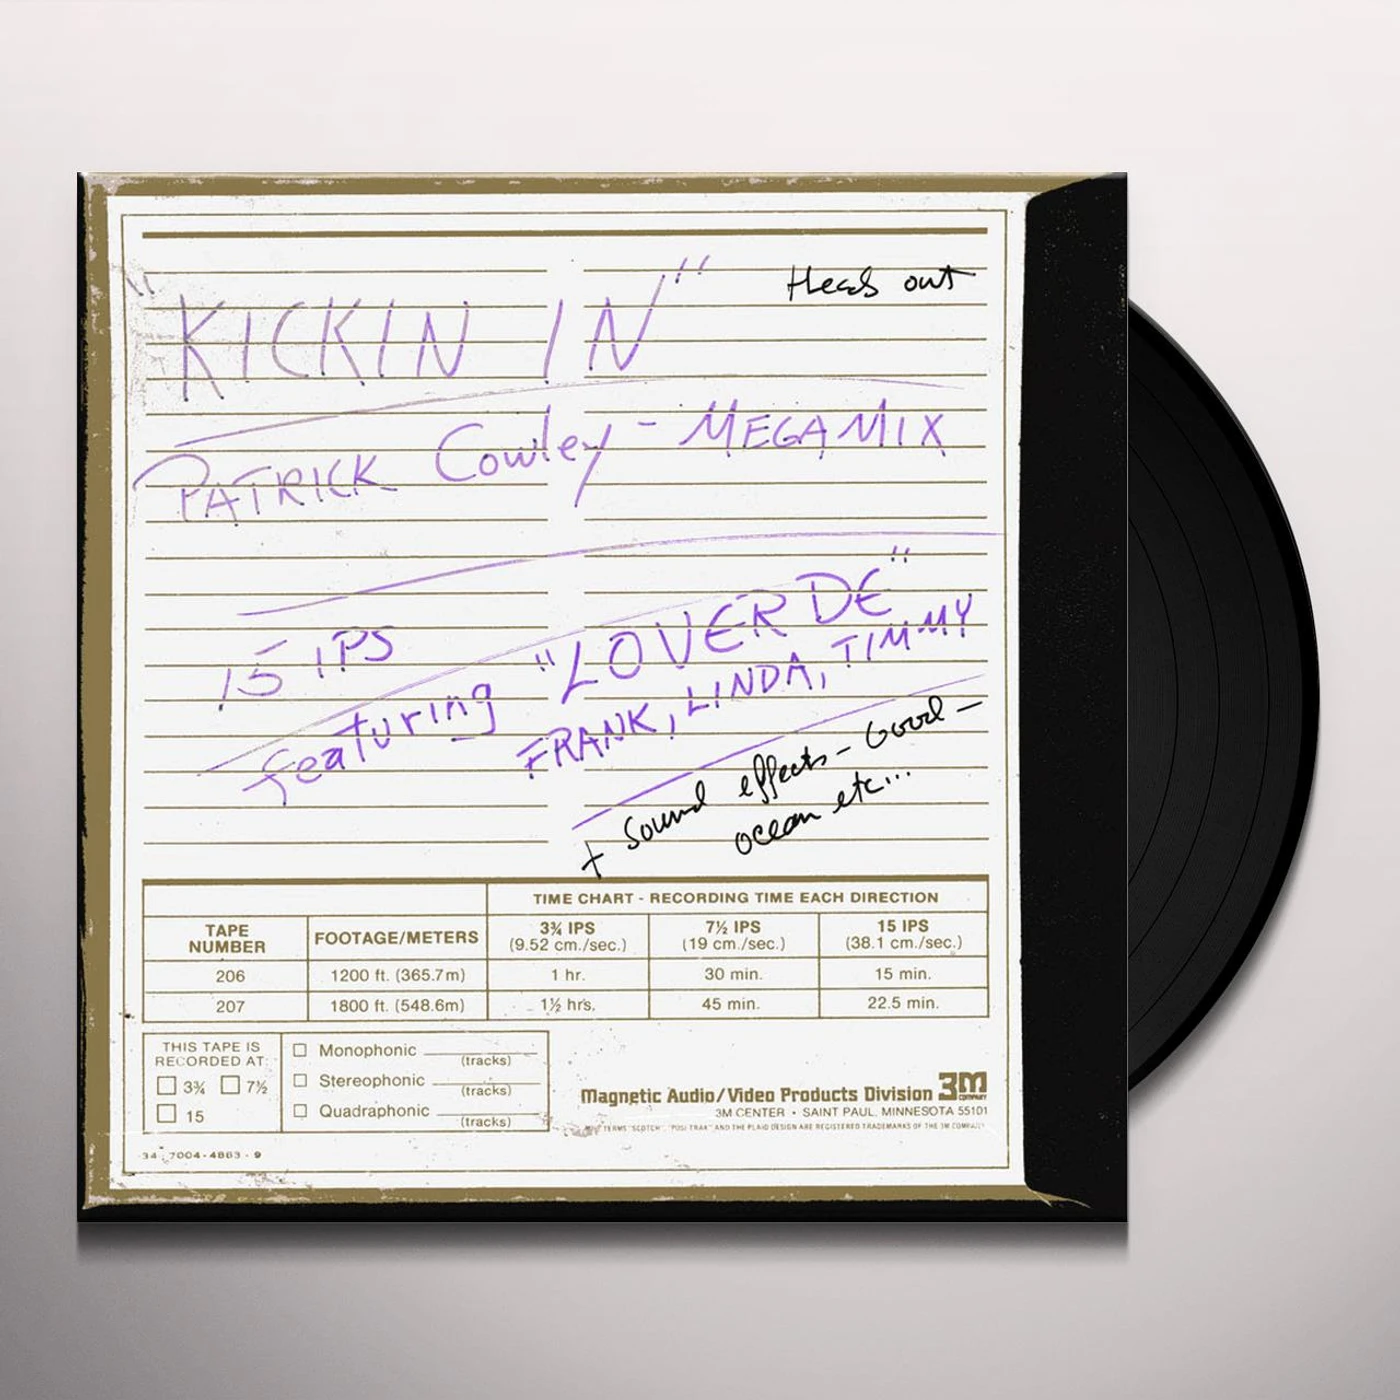 Heads out
"KICKIN IN"
PATRICK Cowley - MEGAMIX
15 IPS
featuring "LOVERDE"
FRANK, LINDA, TIMMY
+ Sound effects - Good -
ocean etc...
TIME CHART - RECORDING TIME EACH DIRECTION
TAPE NUMBER FOOTAGE/METERS 3¾ IPS (9.52 cm./sec.) 7½ IPS (19 cm./sec.) 15 IPS (38.1 cm./sec.)
206 1200 ft. (365.7m) 1 hr. 30 min. 15 min.
207 1800 ft. (548.6m) 1½ hrs. 45 min. 22.5 min.
THIS TAPE IS
RECORDED AT:
3¾ 7½
15
Monophonic
(tracks)
Stereophonic
(tracks)
Quadraphonic
(tracks)
Magnetic Audio/Video Products Division 3M
COMPANY
3M CENTER • SAINT PAUL, MINNESOTA 55101
TERMS "SCOTCH", "POSI TRAK" AND THE PLAID DESIGN ARE REGISTERED TRADEMARKS OF THE 3M COMPANY
34-7004-4863-9